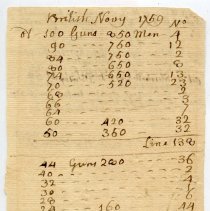 British Navy 1759 No
of 100 Guns 850 Men 4
90 760 12
84 760 2
80 650 8
74 650 13
70 520 23
68 2
66 2
64 7
60 420 32
50 360 32
Line 138
44 Guns 280 36
40 2
32 4
30 1
28 6
24 160 44